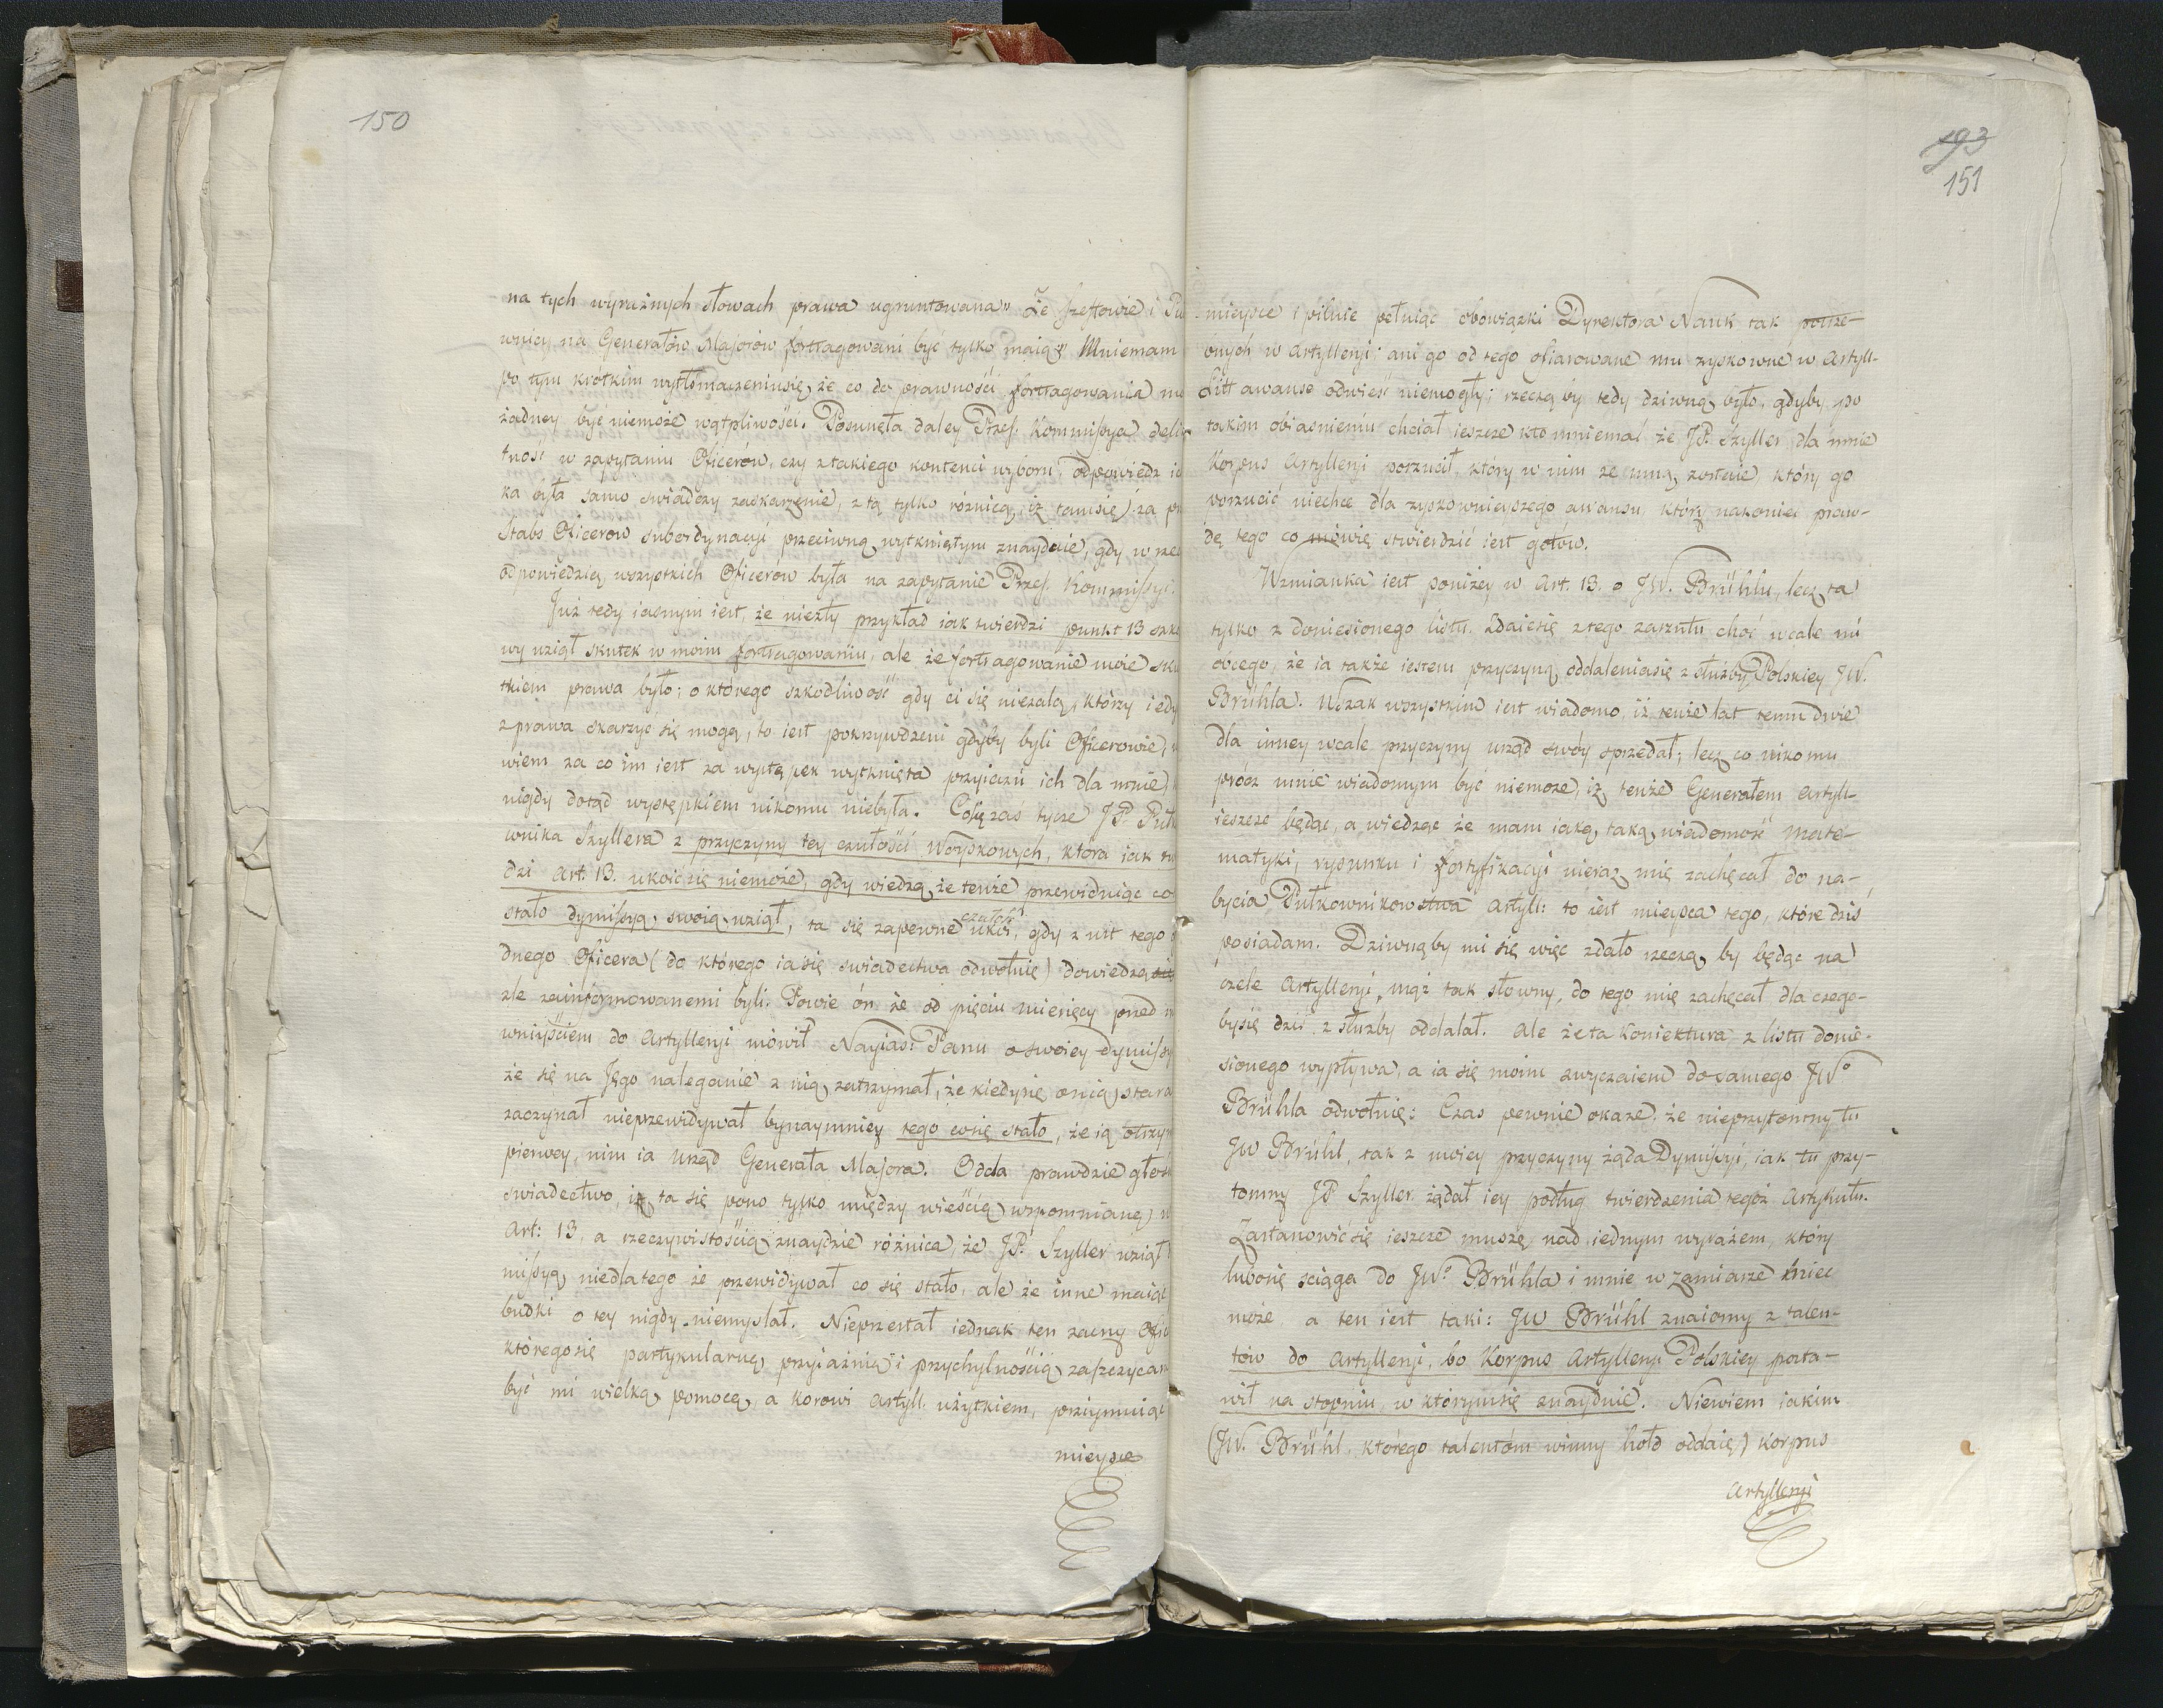 150
na tych wyraźnych słowach prawa ugruntowana" Że Szeffowie i Pu
wnicy na Generałów Majorów fortragowani być tylko maią" Mniemam
po tym krótkim wytłómaczeniusię, że co do prawności fortragowania me
żadney być niemoże wątpliwości. Posunęła daley Przes. Kommissya deli
tność w zapytaniu Oficerów, czy z takiego kontenci wyboru; odpowiedz ia
ka była samo swiadczy zaskarzenie, z tą tylko różnicą, iż tamsię za
Stabs Oficerow subordynacyi przeciwną wytkniętym znayduie, gdy w rze
odpowiedzią wszystkich Oficerów była na zapytanie Przes. Kommissyi.
Już tedy iasnym iest, że niezły przykład iak twierdzi punkt 13 szko
wy uziął skutek w moim fortragowaniu, ale że fortragowanie moie sku
tkiem prawa było; o którego szkodliwość gdy ci się nieżalą, którzy iedy
z prawa skarzyc się mogą, to iest pokrzywdzeni gdyby byli Oficerowie,
wiem za co im iest za występek wytknięta przyiazń ich dla mnie,
nigdy dotąd występkiem nikomu niebyła. Cosię zas tycze JP. Puł
wnika Szyllera z przyczyny tey czułości Woyskowych, która iak tw
dzi Art. 13. ukoić się niemoże, gdy wiedzą, że tenże przewiduiąc co
stało dymissyą swoią uziął, ta się zapewne czułość ukoi, gdy z ust tego
dnego Oficera (do którego ia się swiadectwa odwołuię) dowiedzą się
zle zainformowanemi byli. Powie ón że od pięciu miesięcy przed
wniyściem do Artylleryi mówił Nayias: Panu o swoiey dymissy
że się na Jego naleganie z nią zatrzymał, że kiedysię o nią stara
zaczynał nieprzewidywał bynaymniey tego cosię stało, że ią otrzym
pierwey, nim ia Urząd Generała Majora. Odda prawdzie głoś
swiadectwo, iż ta się pono tylko między wieścią wspomnianą
Art: 13, a rzeczywistością znaydzie różnica, że JP. Szyller uziął
missyą niedlatego że przewidywał co się stało, ale że inne maiąc
budki o tey nigdy niemyslał. Nieprzestał iednak ten zacny Ofic
któregosię partykularną przyiaźnią i przychylnością zaszczycam
być mi wielką pomocą, a Korowi Artyll. użytkiem, przyimuiąc
mieysce
193
151
mieysce i pilnie pełniąc obowiązki Dyrektora Nauk tak potrze-
bnych w Artylleryi; ani go od tego ofiarowane mu zyskowne w Artyll-
Litt awanse odwieść niemogły; rzeczą by tedy dziwną było, gdyby po
takim obiasnieniu chciał ieszcze kto mniemać że JP. Szyller dla mnie
Korpus Artylleryi porzucił, który w nim ze mną zostaie, który go
porzucić niechce dla zyskownieyszego awansu, który nakoniec praw-
dę tego co mówię stwierdzić iest gotów.
Wzmianka iest poniżey w Art. 13. o JW. Brühlu, lecz ta
tylko z doniesionego listu. Zdaiesię z tego zarzutu choć wcale mi
obcego, że ia także iestem przyczyną oddaleniasię z służby Polskiey JW.
Brühla. Wszak wszystkim iest wiadomo, iż tenże lat temu dwie
dla inney wcale przyczyny urząd swóy sprzedał; lecz co nikomu
prócz mnie wiadomym być niemoże, iż tenże Generałem Artyll-
ieszcze będąc, a wiedząc że mam iaką taką wiadomość Mate-
matyki, rysunku i fortyfikacyi nieraz mię zachęcał do na-
bycia Pułkownikowstwa Artyll: to iest mieysca tego, które dziś
posiadam. Dziwnąby mi się więc zdało rzeczą, by będąc na
czele Artylleryi, mąż tak słowny, do tego mię zachęcał dla czego-
bysię dziś z służby oddalał. Ale że ta koniektura z listu donie-
sionego wypływa, a ia się moim zwyczaiem do samego JWo
Brühla odwołuię: Czas pewnie okaże, że nieprzytomny tu
JW Brühl, tak z moiey przyczyny żąda Dymissyi, iak tu przy-
tomny JP Szyller żądał iey podług twierdzenia tegoż Artykułu.
Zastanowić się ieszcze muszę nad iednym wyrazem, który
lubosię sciąga do JWo Brühla i mnie w zamiarze mieć
może a ten iest taki: JW Brühl znaiomy z talen-
tów do Artylleryi, bo Korpus Artylleryi Polskiey posta-
wił na stopniu, w którymsię znayduie. Niewiem iakim
(JW. Brühl, którego talentóm winny hołd oddaię) Korpus
Artylleryi